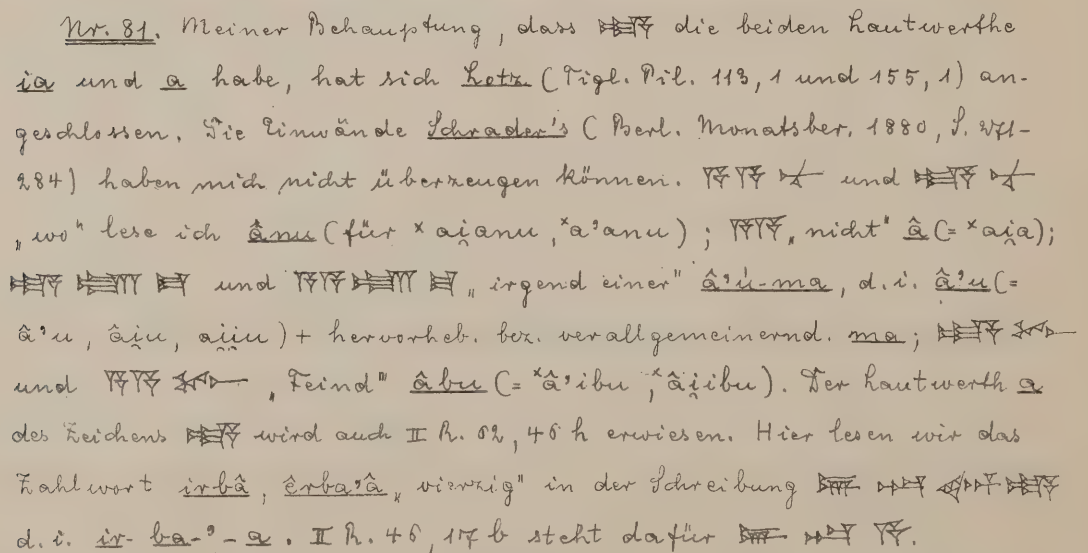 Nr. 81. Meiner Behauptung, dass 𒅀 die beiden Lautwerthe
ia und a habe, hat sich Lotz (Tigl. Pil. 113, 1 und 155, 1) an-
geschlossen. Die Einwände Schrader's (Berl. Monatsber. 1880, S. 271-
284) haben mich nicht überzeugen können. 𒀀𒀀𒉡 und 𒅀𒉡
„wo" lese ich ânu (für ˣai̯anu, ˣa'anu); 𒀀𒀀 „nicht" â (= ˣai̯a);
𒅀𒌑𒈠 und 𒀀𒀀𒌑𒈠 „irgend einer" â'ú-ma, d.i. â'u (=
â'u, âi̯u, ai̯i̯u) + hervorheb. bez. verallgemeinernd. ma; 𒅀
und 𒀀𒀀 „Feind" âbu (= ˣâ'ibu, ˣâi̯ibu). Der Lautwerth a
des Zeichens 𒅀 wird auch II R. 62, 46 h erwiesen. Hier lesen wir das
Zahlwort irbâ, êrba'â „vierzig" in der Schreibung 𒅕𒁀𒀪𒅀
d.i. ir-ba-'-a. II R. 46, 17 b steht dafür 𒅕𒁀𒀀.